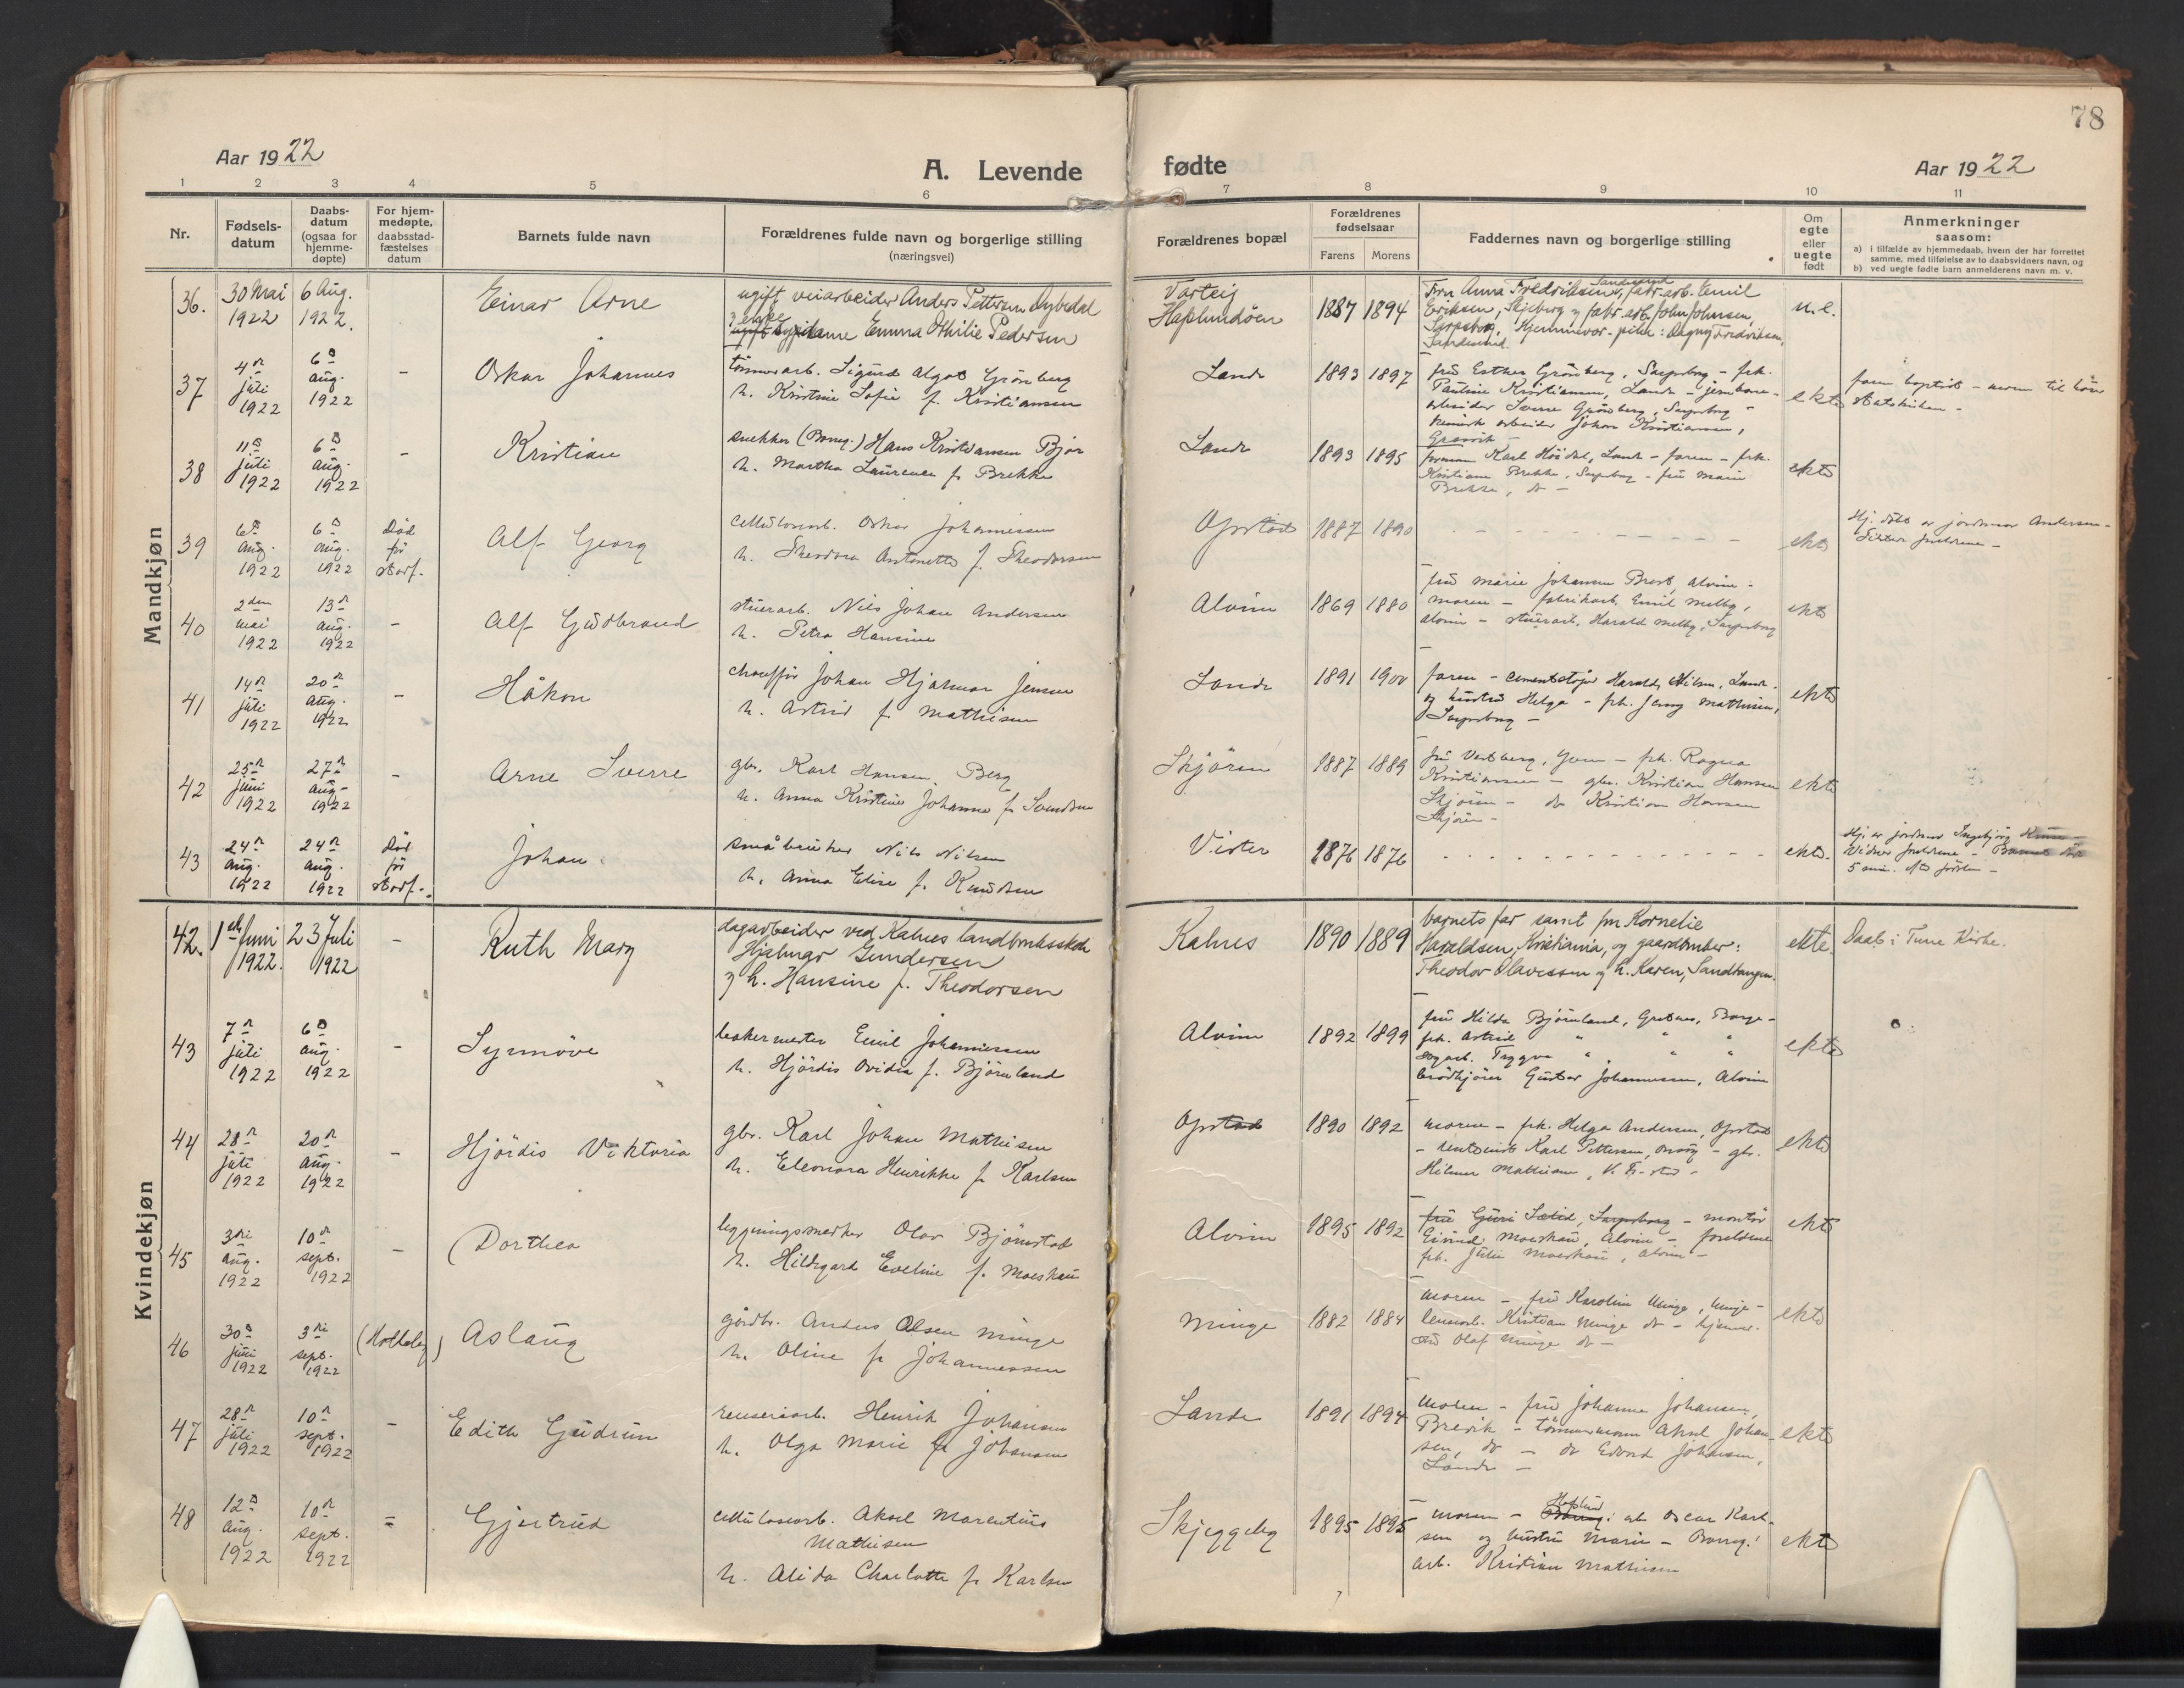 78
Aar 1922
A. Levende
fødte
Aar 1922
1 2 3 4 5 6 7 8 9 10 11
Nr.
Fødsels-
datum
Daabs-
datum
(ogsaa for
hjemme-
døpte)
For hjem-
medøpte,
daabsstad-
fæstelses
datum
Barnets fulde navn
Forældrenes fulde navn og borgerlige stilling
(næringsvei)
Forældrenes bopæl
Forældrenes
fødselsaar
Farens Morens
Faddernes navn og borgerlige stilling
Om
egte
eller
uegte
født
Anmerkninger
saasom:
a) i tilfælde av hjemmedaab, hvem der har forrettet
samme, med tilføielse av to daabsvidners navn, og
b) ved uegte fødte barn anmelderens navn m. v.
Mandkjøn
36. 30 Mai 1922 6 Aug. 1922. Einar Arne
ugift veiarbeider Anders Pettersen
Emma Othilie Pedersen
Varteig
1887 1894
Fru Anna Fredriksen, fabr. arb. Emil
Eriksen, Skjeberg og fabr. arb. John Johnsen,
Sarpsborg,
u.e.
37 4de juli 1922 6te aug. 1922 - Oskar Johannes
tømmerarb. Sigurd Algot Grönberg
h. Kristine Sofie f. Kristiansen
Lande 1893 1897
frú Esther Grönberg, Sarpsborg - frk.
Pauline Kristiansen, Lande - jernbane-
arbeider Sverre Grönberg, Sarpsborg -
kemisk arbeider Johan Kristiansen,
Greåker -
ekte
faren baptist - moren til hör
statskirken -
38 11te juli 1922 6te aug. 1922 - Kristian
snekker (Borreg.) Hans Kristiansen Bjor
h. Martha Laurence f. Brekke
Lande 1893 1895
Karl Lande - faren - frk.
Kristiane Brekke, Sarpsborg - frú Marie
Brekke, do -
ekte
39 6te aug. 1922 6te aug. 1922 Död för stadf. Alf Georg
cellúlosearb. Oskar Johannessen
h. Theodora Antonette f. Theodorsen
Opstad 1887 1890 - - - - - - - - ekte
Hj. döbt av jordmor Andersen -
40 2den mai 1922 13de aug. 1922 - Alf Gúdbrand
stúerarb. Nils Johan Andersen
h. Petra Hansine
Alvim 1869 1880
frú Marie Johansen Alvim -
moren - fabrikarb. Emil Melby,
Alvim - stúerarb. Harald Melby, Sarpsborg
ekte
41 14de juli 1922 20de aug. 1922 - Håkon
chauffør Johan Hjalmar Jensen
h. Astrid f. Mathisen
Lande 1891 1900
faren - cementstøper Harald Nilsen, Lande.
og hústrú Helga - frk. Jenny Mathisen,
Sarpsborg -
ekte
42 25de júni 1922 27de aúg. 1922 - Arne Sverre
gbr. Karl Hansen, Berg
h. Anna Kristine Johanne f. Svendsen
Skjören 1887 1889
Frú Vestberg, - frk. Ragna
Kristiansen - gbr. Kristian Hansen
Skjören - do Kristian Hansen
Skjören -
ekte
43 24de aug. 1922 24de aug. 1922 Död för stadf. Johan
småbrúker Nils Nilsen
h. Anna Elise f. Knúdsen
Vister 1876 1876 - - - - - - - - ekte.
Hj. av jordmor Ingebjörg
5 min. efter födslen -
Kvindekjøn
42. 1ste Juni 1922. 23 Juli 1922 - Ruth Mary
dagarbeider ved Kalnes landbruksskole
Hjalmar Gundersen
og h. Hansine f. Theodorsen
Kalnes 1890 1889
barnets far samt fru Kornelie
Haraldsen, Kristiania, og gaardbruker:
Theodor Olavessen og h. Karen, Sandtangen.
ekte.
Daab i Tune Kirke.
43 7de júli 1922 6te aug. 1922 - Synnöve
bakermester Emil Johannessen
h. Hjördis Ovidia f. Björnland
Alvim 1892 1899
frú Hilda Björnland, Borge -
frk. Astrid " "
Trygve " " "
brödkjörer Gústav Johannessen, Alvim
ekte
44 28de júli 1922 20de aug. 1922 - Hjördis Viktoria
gbr. Karl Johan Mathisen
h. Eleonora Henrikke f. Karlsen
Opstad 1890 1892
moren - frk. Helga Andersen, Opstad
- Karl Pettersen, - gbr.
Hilmar Mathisen,
ekte
45 3die aug. 1922 10de sept. 1922 - Dorthea
bygningssnekker Olav Björnstad
h. Hildegard Eveline f. Moeskaú
Alvim 1895 1892
frú Gúri Sarpsborg - montör
Eivind Moeskaú, Alvim - foreldrene
frk. Júlie Moeskaú, Alvim -
ekte
46 30te júni 1922 3die sept. 1922 Aslaúg
gårdbr. Anders Olsen Minge
h. Oline f. Johannessen
Minge 1882 1884
moren - frú Karoline Minge, Minge -
Kristian Minge do -
Olaf Minge do -
ekte
47 28de júli 1922 10de sept. 1922 - Edith Gúdrún
renseriarb. Henrik Johansen
h. Olga Marie f. Johansen
Lande 1891 1894
moren - frú Johanne Johansen,
Brevik - tömmermann Aksel Johan-
sen, do - do Edvard Johansen,
Lande -
ekte
48 12te aug. 1922 10de sept. 1922 = Gjertrúd
cellúlosearb. Aksel Marentius
Mathisen
h. Alida Charlotte f. Karlsen
Skjeggeby 1895 1895
- moren - Hafslund arb. Oscar Karl-
sen og hústrú Marie - Borreg.
arb. Kristian Mathisen
ekte